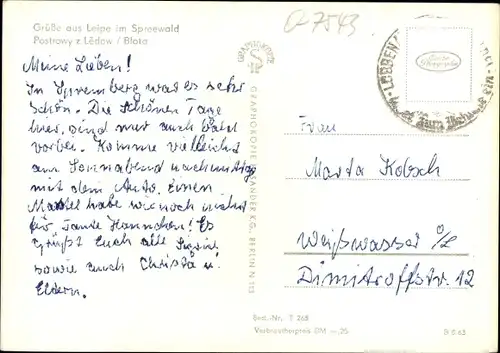 Grüße aus Leipe im Spreewald
Postrowy z Lědow / Błota
a-7543
Meine Lieben!
In Spremberg war es sehr
schön. Die schönen Tage
hier, sind nur auch bald
vorbei. Komme vielleicht
am Sonnabend nachmittag
mit dem Auto. Einen
Mantel habe wir noch nicht
für Tante Hannchen! Es
grüßt Euch alle
sowie auch Christa u.
Eltern.
GRAPHOKOPIE
GRAPHOKOPIE H. SANDER KG, BERLIN N 113
LÜBBEN
Frau
Marta Kobsch
Weißwasser O/L
Dimitroffstr. 12
Best.-Nr. T 268
Verbraucherpreis DM –,20